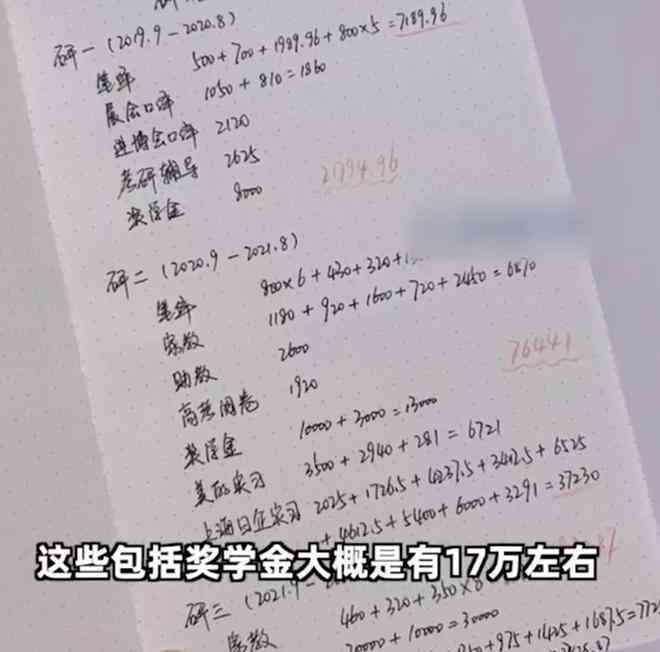 研一 (2019.9-2020.8)
笔译 500+700+1989.96+800×5=7189.96
展会口译 1050+810=1860
进博会口译 2120
考研辅导 2625
奖学金 8000
研二 (2020.9-2021.8)
笔译 800×6+430+320+
家教 1180+920+1600+720+2450=6870
助教 2600
高考阅卷 1920
76441
奖学金 10000+3000=13000
美的实习 3500+2940+281=6721
上海日企实习 2025+1726.5+4237.5+3412.5+6525
+4612.5+5400+6000+3291=37230
这些包括奖学金大概是有17万左右
研三 (2021.9-
家教 460+320+350×8
20000+10000=30000
+975+1425+1687.5=